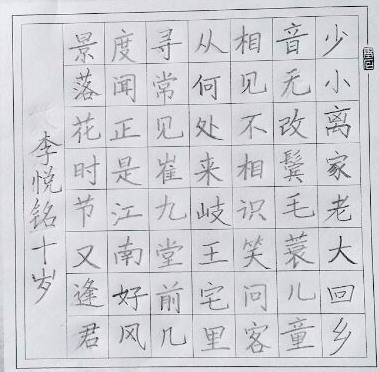 少小离家老大回乡
音无改鬓毛蓑儿童
相见不相识笑问客
从何处来岐王宅里
寻常见崔九堂前几
度闻正是江南好风
景落花时节又逢君
李悦铭十岁